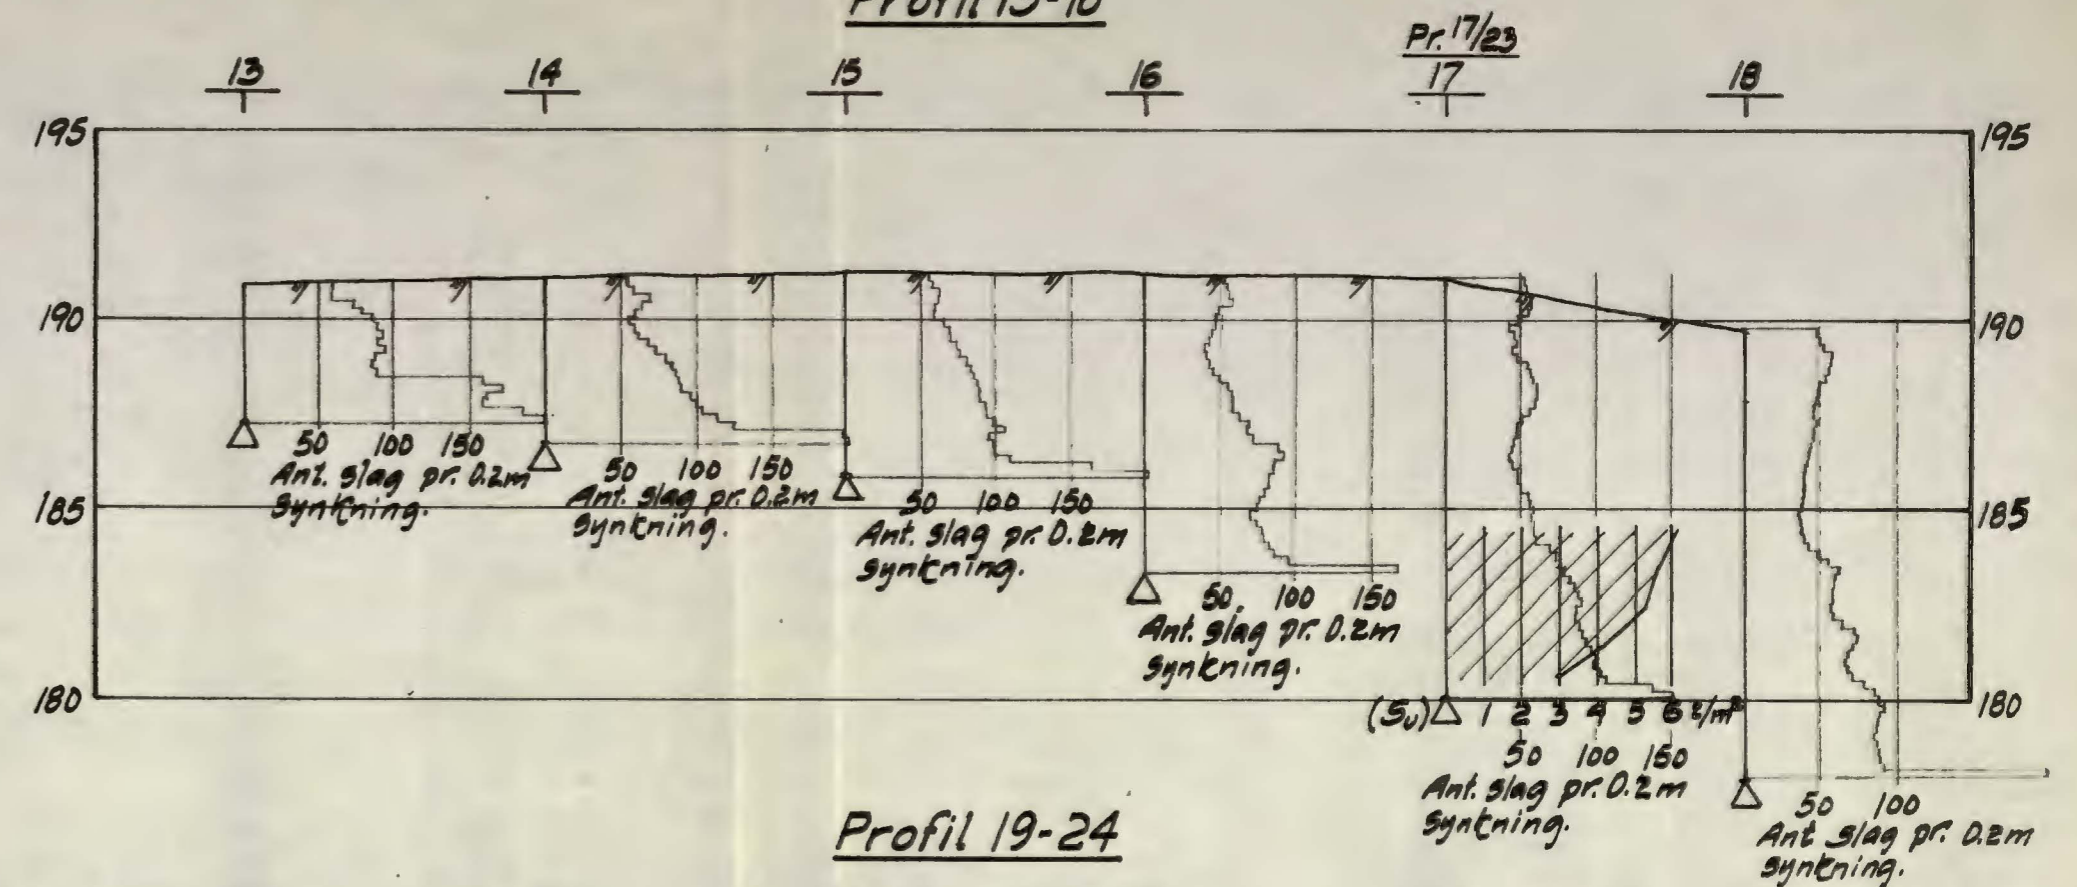 Profil 13-18
Pr. 17/23
13 14 15 16 17 18
195 195
190 190
50 100 150
Ant. slag pr. 0.2m
synkning.
50 100 150
Ant. slag pr. 0.2m
synkning.
50 100 150
Ant. slag pr. 0.2m
synkning.
185 185
50 100 150
Ant. slag pr. 0.2m
synkning.
180 180
(Su) 1 2 3 4 5 6 t/m²
50 100 150
Ant. slag pr. 0.2m
synkning.
50 100
Ant slag pr. 0.2m
synkning.
Profil 19-24